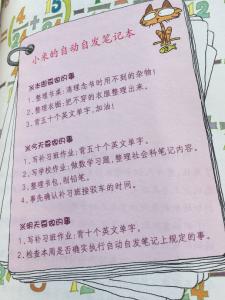 小米的自动自发笔记本
※本周要做的事
1、整理书桌：清理念书时用不到的杂物！
2、整理衣橱：把不穿的衣服整理出来。
3、背五十个英文单字，加油！
※今天要做的事
1、写补习班作业：背五个英文单字。
2、写学校作业：做数学习题，整理社会科笔记内容。
3、整理书包，削铅笔。
4、事先确认补习班接驳车的时间。
※明天要做的事
1、写补习班作业：背十个英文单字。
2、检查本周是否确实执行自动自发笔记上规定的事。